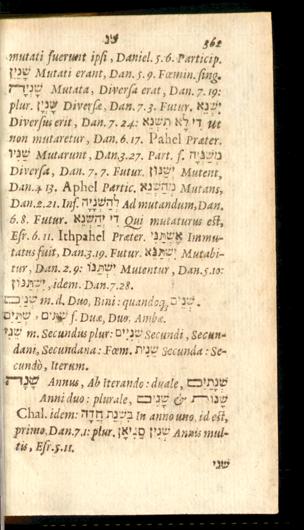 שנ 362
mutati fuerunt ipsi, Daniel. 5.6. Particip.
שָׁנַיִן Mutati erant, Dan. 5.9. Fœmin. sing.
שָׁנְיָה Mutata, Diversa erat, Dan. 7.19:
plur. שָׁנְיָן Diversæ, Dan. 7.3. Futur. יִשְׁנֵא
Diversus erit, Dan. 7.24: דִּי לָא תִשְׁנֵא Ut
non mutaretur, Dan. 6.17. Pahel Præter.
שַׁנִּיו Mutarunt, Dan. 3.27. Part. f. מְשַׁנְּיָה
Diversa, Dan. 7.7. Futur. יְשַׁנּוֹן Mutent,
Dan. 4.13. Aphel Partic. מְהַשְׁנֵא Mutans,
Dan. 2.21. Inf. לְהַשְׁנָיָה Ad mutandum, Dan.
6.8. Futur. דִּי יְהַשְׁנֵא Qui mutaturus est,
Esr. 6.11. Ithpahel Præter. אֶשְׁתַּנִּי Immu-
tatus fuit, Dan. 3.19. Futur. יִשְׁתַּנֵּא Mutabi-
tur, Dan. 2.9: יִשְׁתַּנּוֹ Mutentur, Dan. 5.10:
יִשְׁתַּנּוֹן, idem. Dan. 7.28.
שְׁנַיִם m. d. Duo, Bini: quandoq; שְׁנֵים.
שְׁתַּיִם, שְׁתֵּים f. Duæ, Duo. Ambæ.
שֵׁנִי m. Secundus plur: שְׁנִיִּים Secundi, Secun-
dani, Secundana: Fœm. שֵׁנִית Secunda: Se-
cundò, Iterum.
שָׁנָה Annus, Ab iterando: duale, שְׁנָתַיִם
Anni duo: plurale, שָׁנִים & שָׁנוֹת
Chal. idem: בִּשְׁנַת חֲדָה In anno uno, id est,
primo. Dan. 7.1: plur. שְׁנִין סַגִּיאָן Annis mul-
tis, Esr. 5.11.
שני